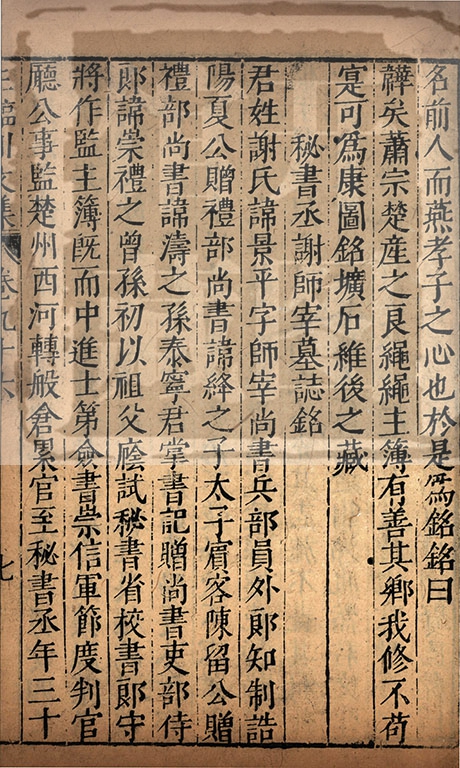 名前人而燕孝子之心也於是爲銘銘曰
韡矣蕭宗楚産之良繩繩主簿有善其鄉我修不苟
寔可爲康圖銘壙石維後之藏
秘書丞謝師宰墓誌銘
君姓謝氏諱景平字師宰尚書兵部員外郎知制誥
陽夏公贈禮部尚書諱絳之子太子賓客陳留公贈
禮部尚書諱濤之孫泰寧君掌書記贈尚書吏部侍
郎諱崇禮之曾孫初以祖父廕試秘書省校書郎守
將作監主簿旣而中進士第僉書崇信軍節度判官
廳公事監楚州西河轉般倉累官至秘書丞年三十
王臨川文集 卷九十六 七